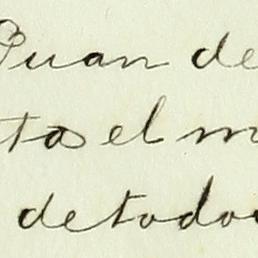 Juan de
ta el m
de todo